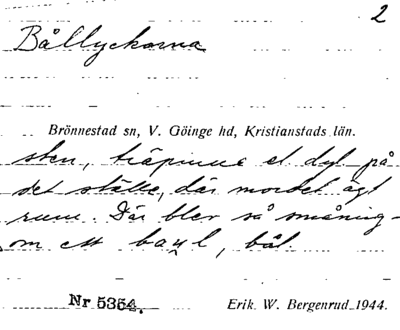 2
Bållyckorna
Brönnestad sn, V. Göinge hd, Kristianstads län.
sten, träpinne el dyl. på
det ställe, där mordet ägt
rum. Där blev så småning-
om ett baɥl, bål
Nr 5354.
Erik W. Bergenrud 1944.